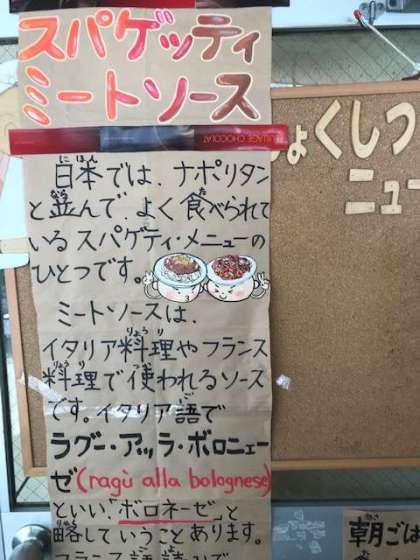 スパゲッティ
ミートソース
VILLAGE CHOCOLAT
日本では、ナポリタン
と並んで、よく食べられて
いるスパゲティ・メニューの
ひとつです。
ミートソースは、
イタリア料理やフランス
料理で使われるソース
です。イタリア語で
ラグー・アッラ・ボロニェー
ゼ(ragù alla bolognese)
といい、「ボロネーゼ」と
略していうことあります。
ょくしつ
ニュー
朝ごは